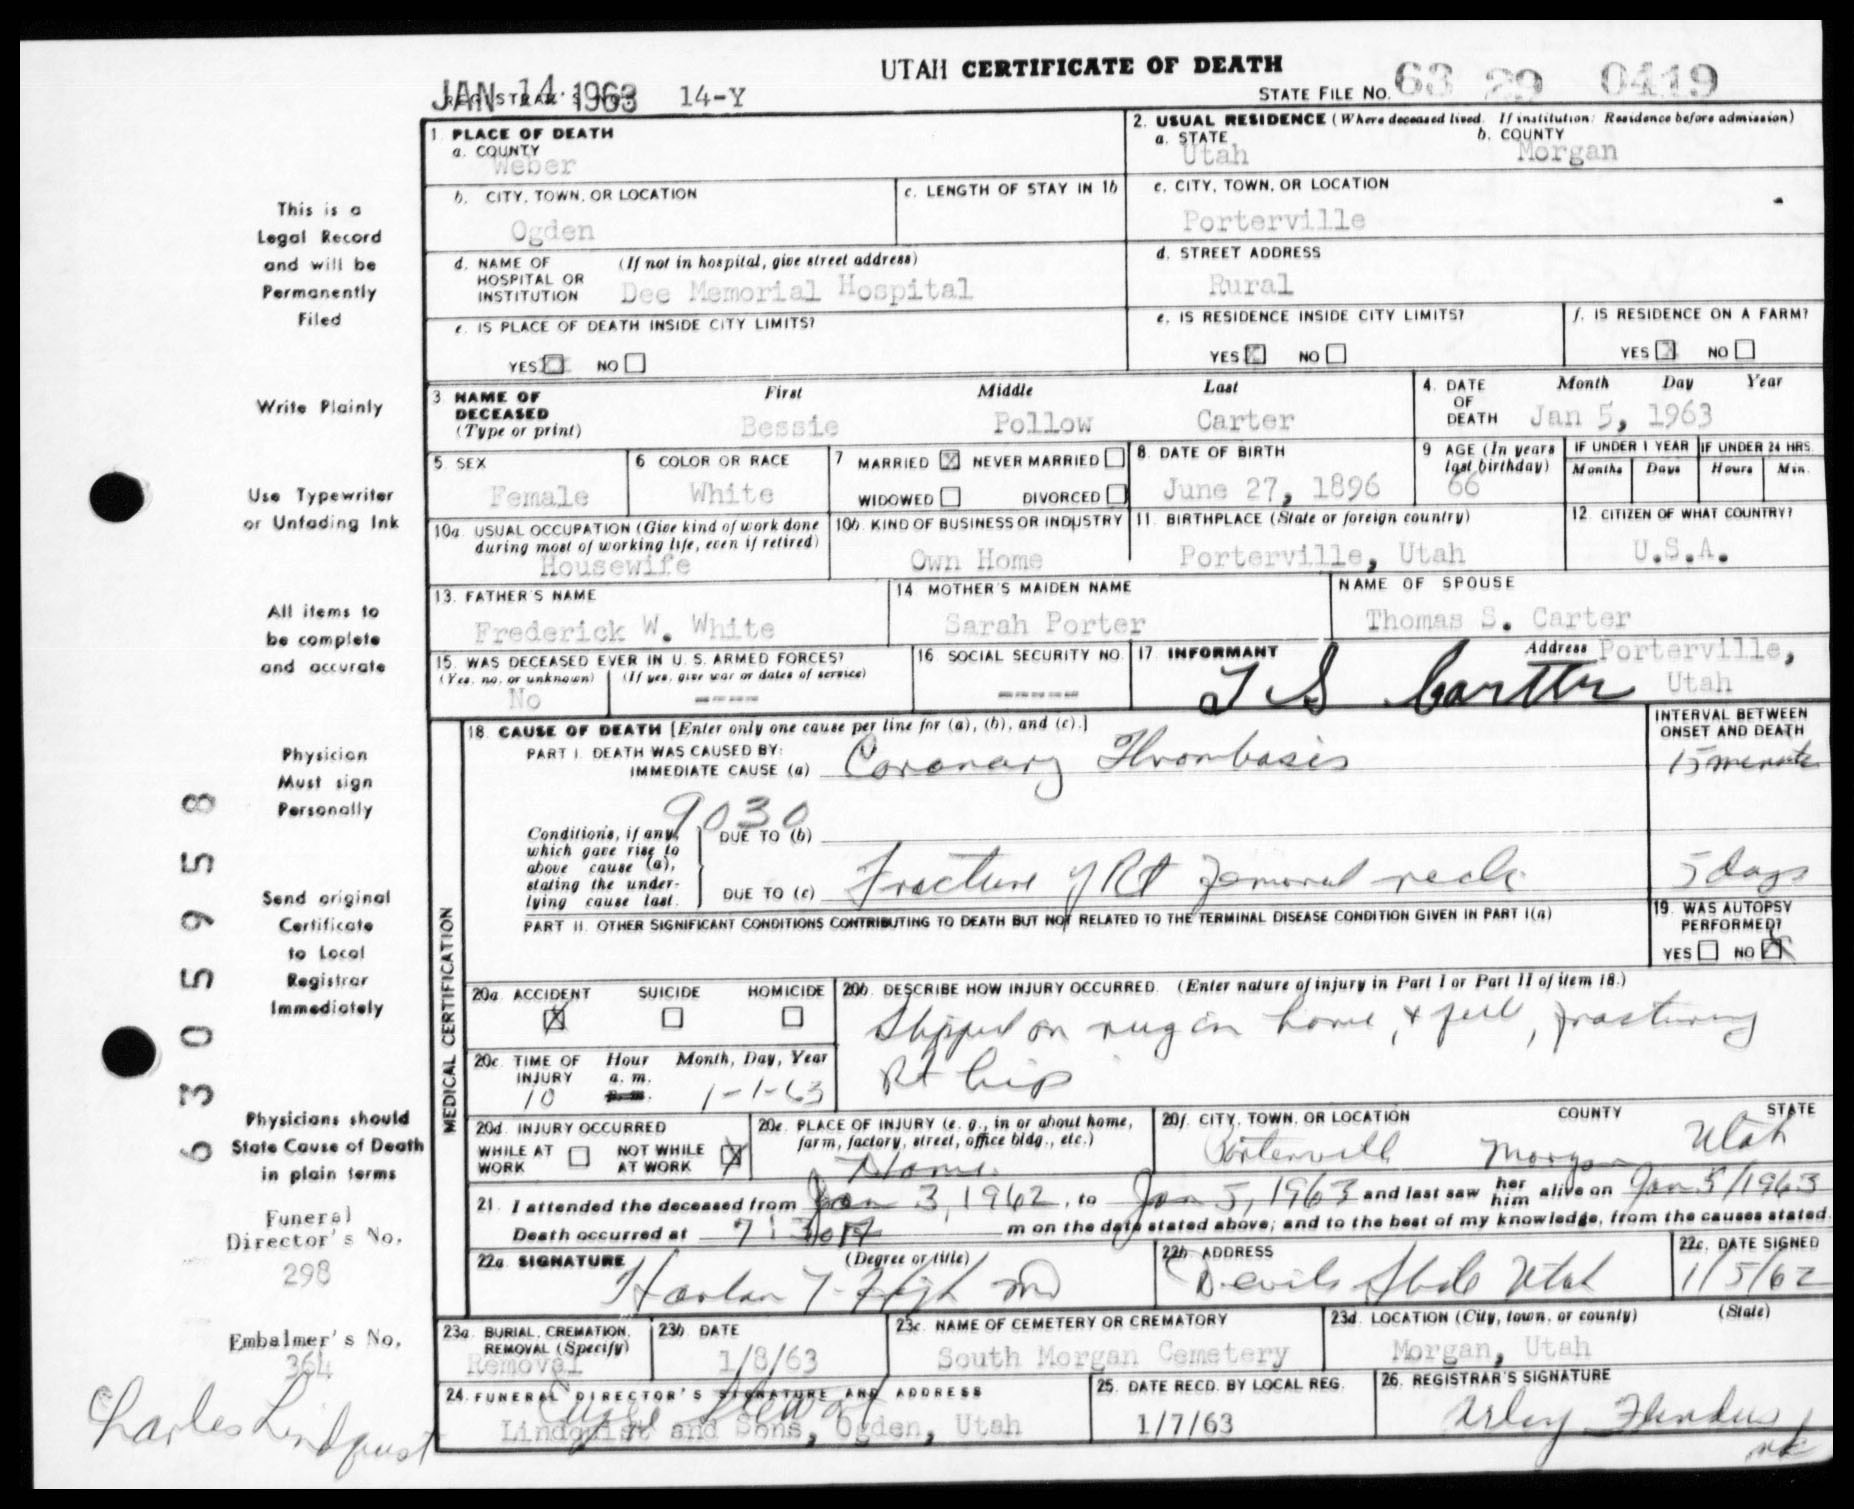 UTAH CERTIFICATE OF DEATH
JAN 14 1963 14-Y
STATE FILE NO. 63 29 0419
1. PLACE OF DEATH
a. COUNTY
Weber
2. USUAL RESIDENCE (Where deceased lived. If institution: Residence before admission)
a. STATE b. COUNTY
Utah Morgan
b. CITY, TOWN, OR LOCATION
Ogden
c. LENGTH OF STAY IN 1b
c. CITY, TOWN, OR LOCATION
Porterville
d. NAME OF HOSPITAL OR INSTITUTION (If not in hospital, give street address)
Dee Memorial Hospital
d. STREET ADDRESS
Rural
e. IS PLACE OF DEATH INSIDE CITY LIMITS?
YES NO
e. IS RESIDENCE INSIDE CITY LIMITS?
YES NO
f. IS RESIDENCE ON A FARM?
YES NO
3. NAME OF DECEASED (Type or print)
First Middle Last
Bessie Pollow Carter
4. DATE OF DEATH Month Day Year
Jan 5, 1963
5. SEX
Female
6 COLOR OR RACE
White
7 MARRIED NEVER MARRIED
WIDOWED DIVORCED
8. DATE OF BIRTH
June 27, 1896
9 AGE (In years last birthday)
66
IF UNDER 1 YEAR
Months Days
IF UNDER 24 HRS.
Hours Min.
10a. USUAL OCCUPATION (Give kind of work done during most of working life, even if retired)
Housewife
10b. KIND OF BUSINESS OR INDUSTRY
Own Home
11. BIRTHPLACE (State or foreign country)
Porterville, Utah
12. CITIZEN OF WHAT COUNTRY?
U.S.A.
13. FATHER'S NAME
Frederick W. White
14 MOTHER'S MAIDEN NAME
Sarah Porter
NAME OF SPOUSE
Thomas S. Carter
15. WAS DECEASED EVER IN U. S. ARMED FORCES?
(Yes, no, or unknown) (If yes, give war or dates of service)
No ----
16 SOCIAL SECURITY NO.
-----
17. INFORMANT Address
T S Carter Porterville,
Utah
MEDICAL CERTIFICATION
18. CAUSE OF DEATH [Enter only one cause per line for (a), (b), and (c).]
INTERVAL BETWEEN ONSET AND DEATH
PART I. DEATH WAS CAUSED BY:
IMMEDIATE CAUSE (a) Coronary Thrombosis 15 minute
9030
Conditions, if any, which gave rise to above cause (a), stating the underlying cause last.
DUE TO (b)
DUE TO (c) Fracture of Rt Femoral neck 5 days
PART II. OTHER SIGNIFICANT CONDITIONS CONTRIBUTING TO DEATH BUT NOT RELATED TO THE TERMINAL DISEASE CONDITION GIVEN IN PART I(a)
19. WAS AUTOPSY PERFORMED?
YES NO
20a. ACCIDENT SUICIDE HOMICIDE
20b. DESCRIBE HOW INJURY OCCURRED. (Enter nature of injury in Part I or Part II of item 18.)
Slipped on rug in home, & fell, fracturing
Rt hip
20c. TIME OF INJURY Hour Month, Day, Year
a. m.
10 p.m. 1-1-63
20d. INJURY OCCURRED
WHILE AT WORK NOT WHILE AT WORK
20e. PLACE OF INJURY (e. g., in or about home, farm, factory, street, office bldg., etc.)
Home
20f. CITY, TOWN, OR LOCATION COUNTY STATE
Porterville Morgan Utah
21. I attended the deceased from Jan 3, 1962, to Jan 5, 1963 and last saw her him alive on Jan 5/1963
Death occurred at 7:30 A m on the date stated above; and to the best of my knowledge, from the causes stated.
22a. SIGNATURE (Degree or title)
Harlan T. High MD
22b. ADDRESS
Devils Slide Utah
22c. DATE SIGNED
1/5/62
23a. BURIAL, CREMATION, REMOVAL (Specify)
Removal
23b. DATE
1/8/63
23c. NAME OF CEMETERY OR CREMATORY
South Morgan Cemetery
23d. LOCATION (City, town, or county) (State)
Morgan, Utah
24. FUNERAL DIRECTOR'S SIGNATURE AND ADDRESS
Lindquist and Sons, Ogden, Utah
25. DATE RECD. BY LOCAL REG.
1/7/63
26. REGISTRAR'S SIGNATURE
This is a
Legal Record
and will be
Permanently
Filed
Write Plainly
Use Typewriter
or Unfading Ink
All items to
be complete
and accurate
Physician
Must sign
Personally
Send original
Certificate
to Local
Registrar
Immediately
Physicians should
State Cause of Death
in plain terms
Funeral
Director's No.
298
Embalmer's No.
364
Charles Lindquist
6 3 0 5 9 5 8